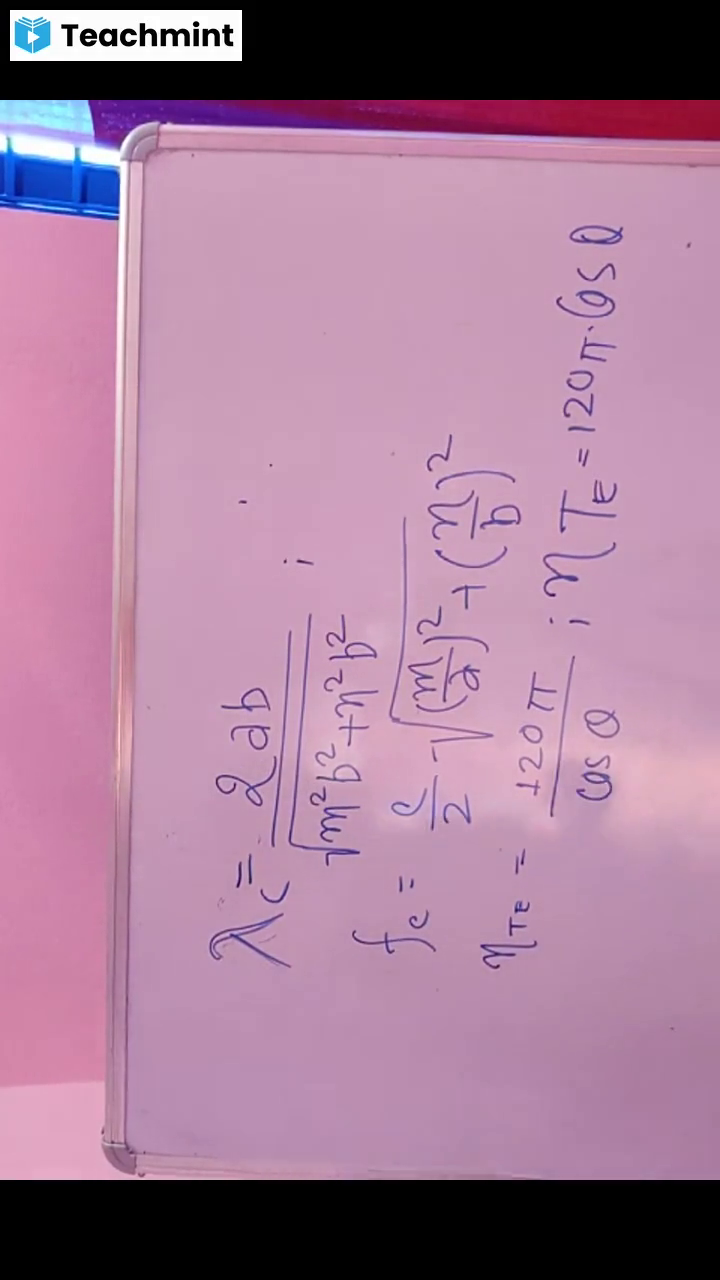 Teachmint
λc = 2ab / √(m²b² + n²b²) ;
fc = c/2 · √((m/a)² + (n/b)²)
ηTE = 120π / Cos θ ; ηTE = 120π · Cos θ